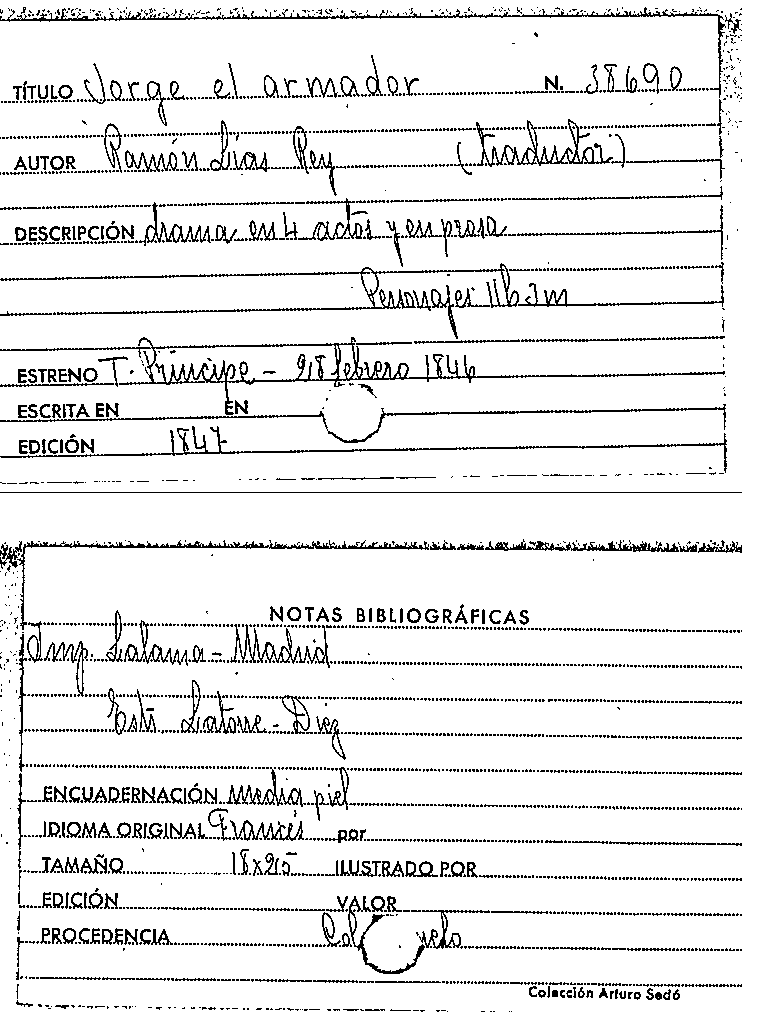 TÍTULO Jorge el armador N. 38690
AUTOR Ramón Lías Rey (traductor)
DESCRIPCIÓN drama en 4 actos y en prosa
Personajes 11h 3m
ESTRENO T. Príncipe - 28 febrero 1846
ESCRITA EN EN
EDICIÓN 1847
NOTAS BIBLIOGRÁFICAS
Imp. Lalama - Madrid
Estr Latorre - Diez
ENCUADERNACIÓN media piel
IDIOMA ORIGINAL Francés por
TAMAÑO 18x25 ILUSTRADO POR
EDICIÓN VALOR
PROCEDENCIA
Colección Arturo Sedó